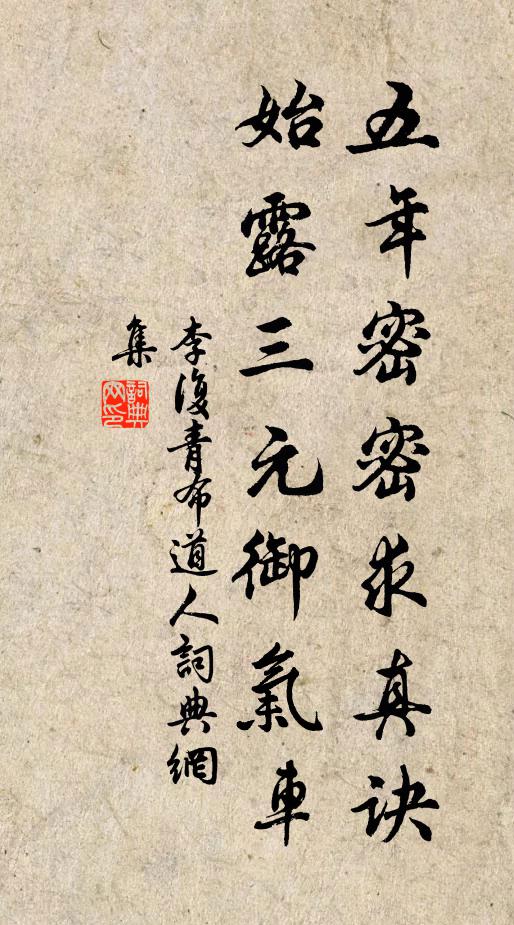 五年密密求真訣
始露三元御氣車
李復青布道人詞典網
集
詞典網印